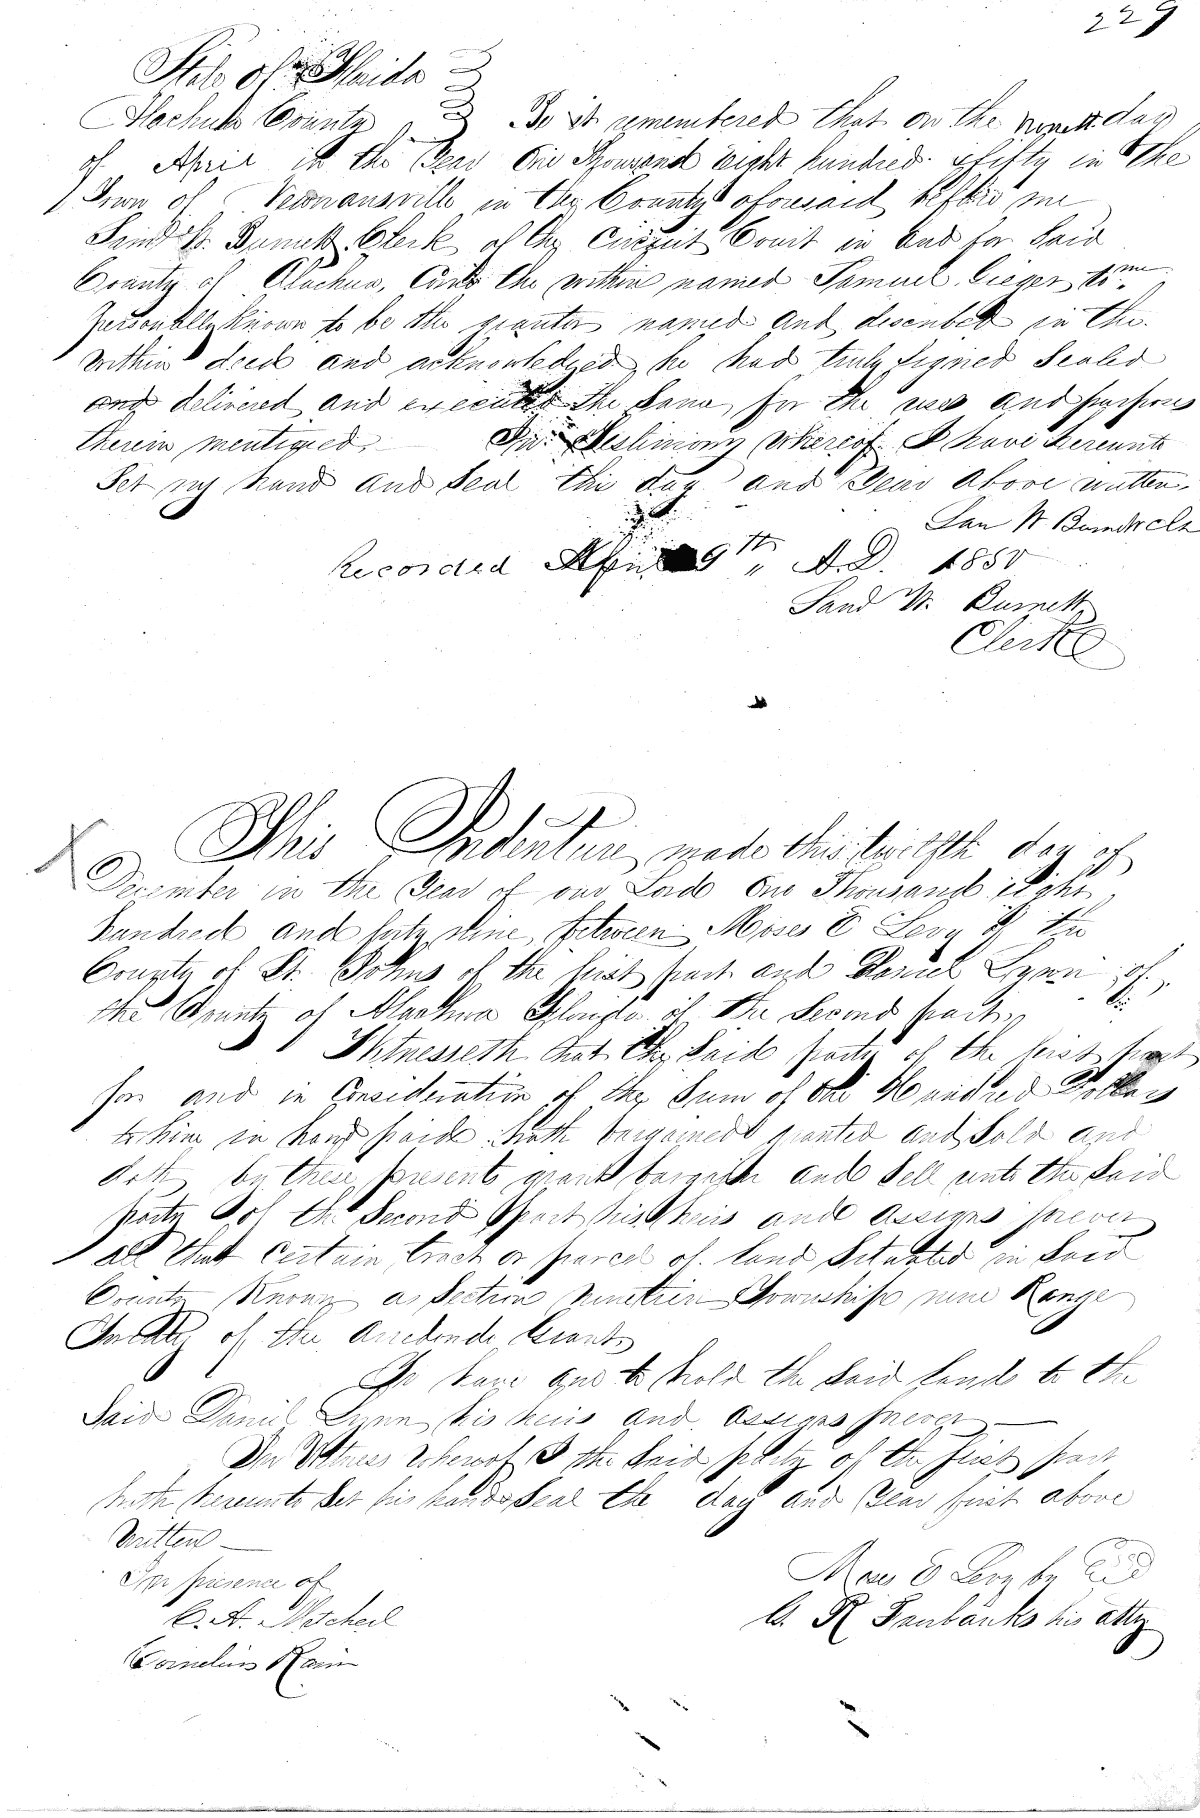 229
State of Florida
Alachua County Be it remembered that on the Nineth day
of April in the Year One Thousand eight hundred & fifty in the
Town of Newnansville in the County aforesaid before me
W. Burnett Clerk of the Circuit Court in and for Said
County of Alachua, Came the within named Samuel Geiger to me
personally known to be the grantor named and described in the
within deed and acknowledged he had truly Signed Sealed
and delivered and executed the Same for the uses and purposes
therein mentioned. In Testimony Whereof I have hereunto
Set my hand and Seal this day and Year above written.
Sam W Burnett Clk
Recorded April 9th " A.D. 1850
W. Burnett
Clerk
X This Indenture made this twelfth day of
December in the Year of our Lord One Thousand eight
hundred and forty nine between Moses E Levy of the
County of St. Johns of the first part and Daniel Lynn of
the County of Alachua Florida of the Second part,
Witnesseth that the Said party of the first part
for and in Consideration of the Sum of One Hundred Dollars
to him in hand paid hath bargained granted and Sold and
doth by these presents grant bargain and Sell unto the Said
party of the Second part his heirs and assigns forever
all that Certain tract or parcel of land Situated in Said
County Known as Section nineteen Township nine Range
Twenty of the Arredondo Grant
To have and to hold the Said lands to the
Said Daniel Lynn his heirs and assigns forever —
In Witness Whereof I the Said party of the first part
hath hereunto Set his hand & Seal the day and Year first above
Written —
In presence of
Moses E Levy by Seal
C. A. Mitchell
G. R Fairbanks his atty
Cornelius Rain